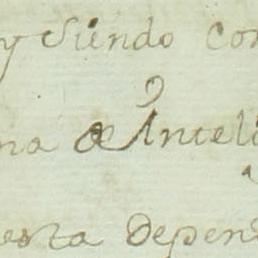 y Siendo con
na de Intel
esta depen